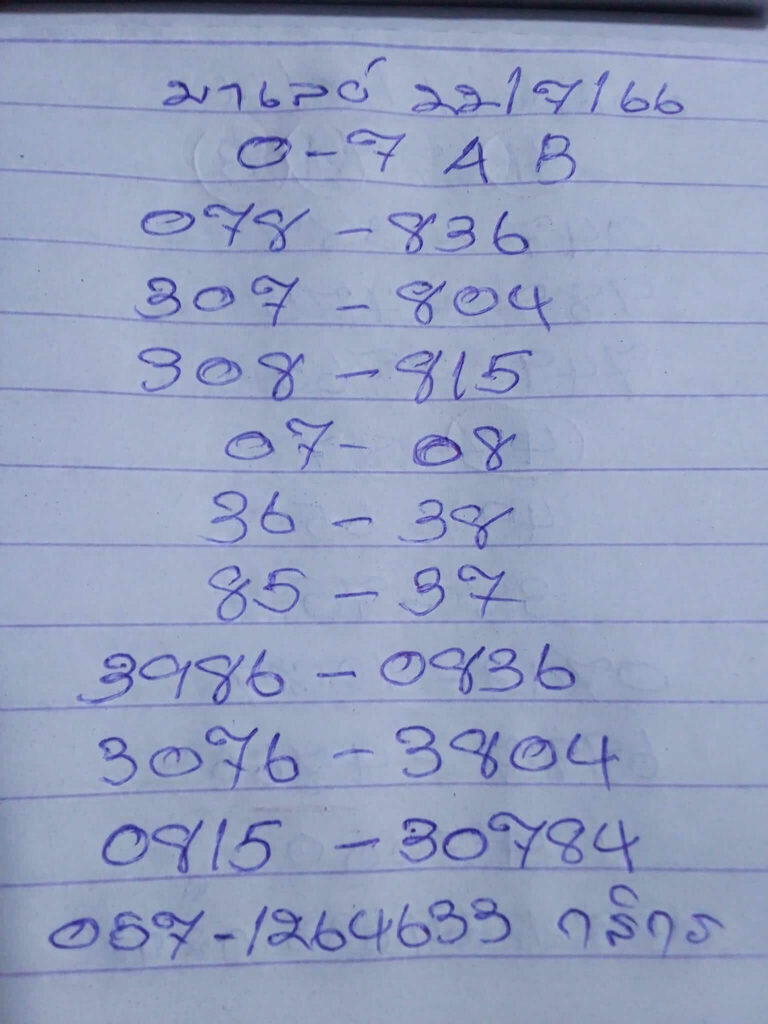 มาเลย์ 22/7/66
0-7 A B
078 - 836
307 - 804
308 - 815
07 - 08
36 - 38
85 - 37
3986 - 0836
3076 - 3804
0815 - 30784
057-1264633 กสิกร